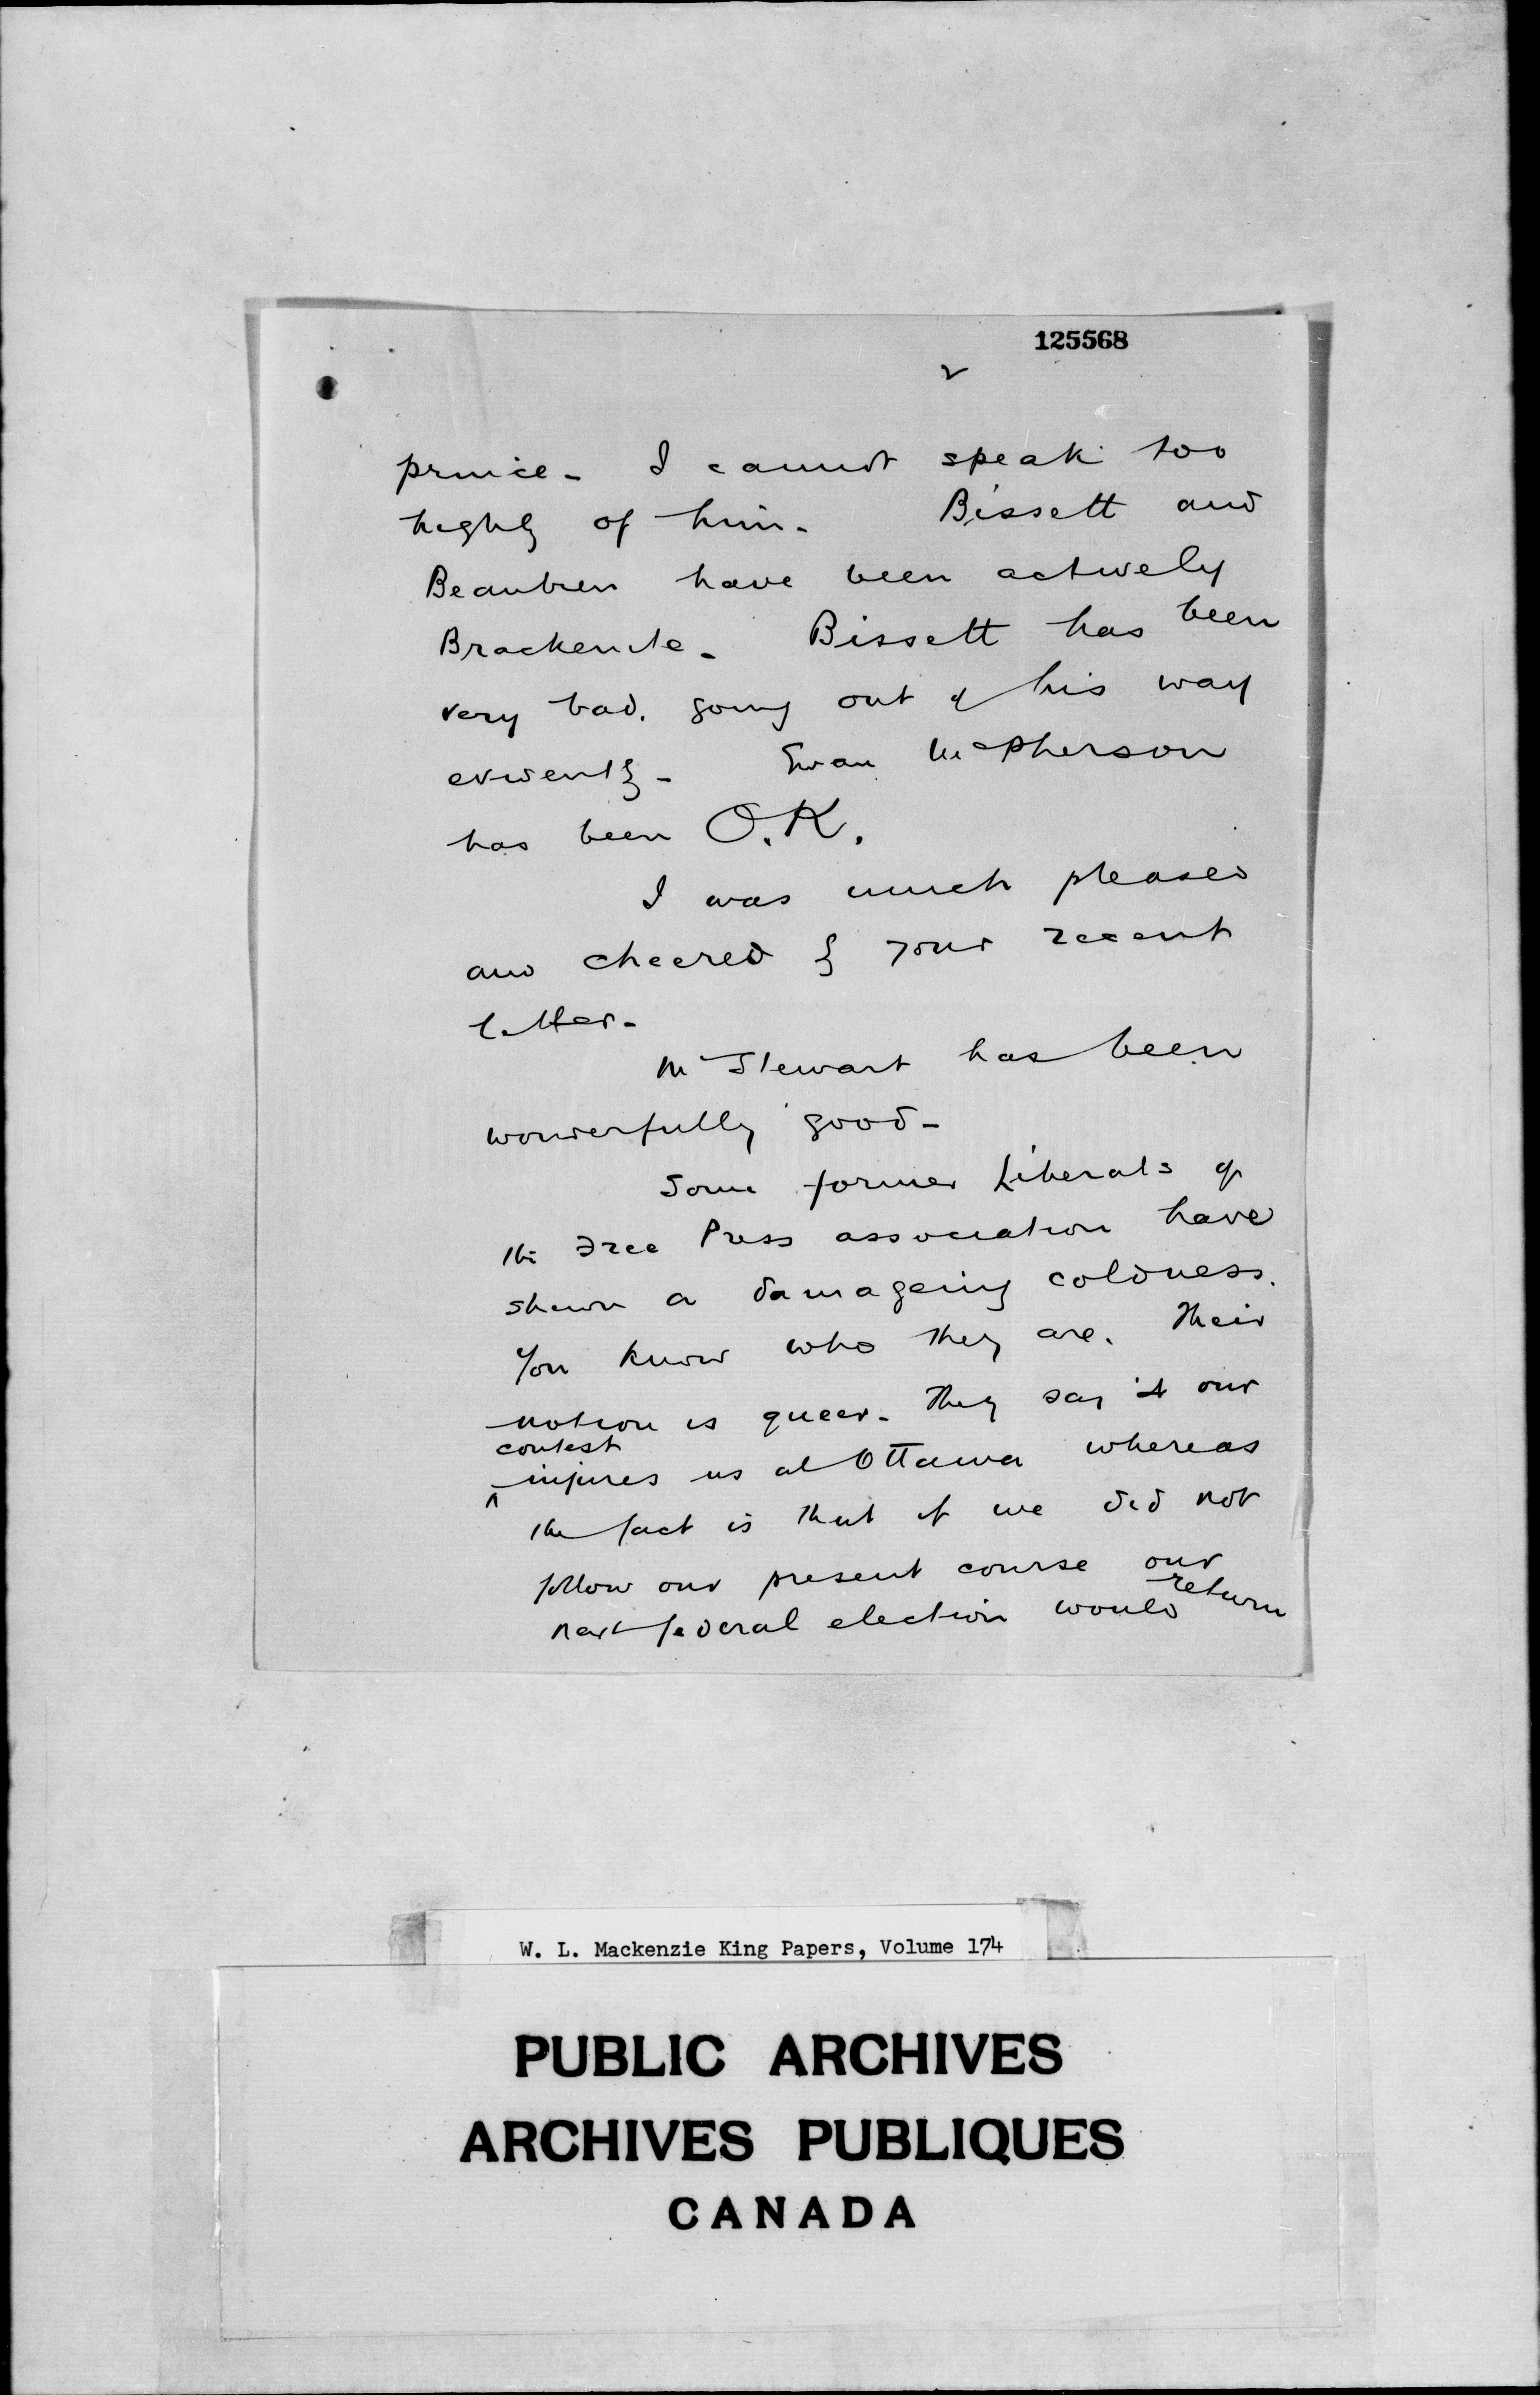 125568
2
prince - I cannot speak too
highly of him - Bissett and
Beaubien have been actively
Brackenite - Bissett has been
very bad, going out of his way
evidently - Ewan McPherson
has been O.K.
I was much pleased
and cheered by your recent
letter -
Mr Stewart has been
wonderfully good -
Some former Liberals of
the Free Press association have
shewn a damageing coldness.
You know who they are. Their
notion is queer - They say it our
contest
^ injures us at Ottawa whereas
the fact is that if we did not
follow our present course our
return
next federal election would
W. L. Mackenzie King Papers, Volume 174
PUBLIC ARCHIVES
ARCHIVES PUBLIQUES
CANADA